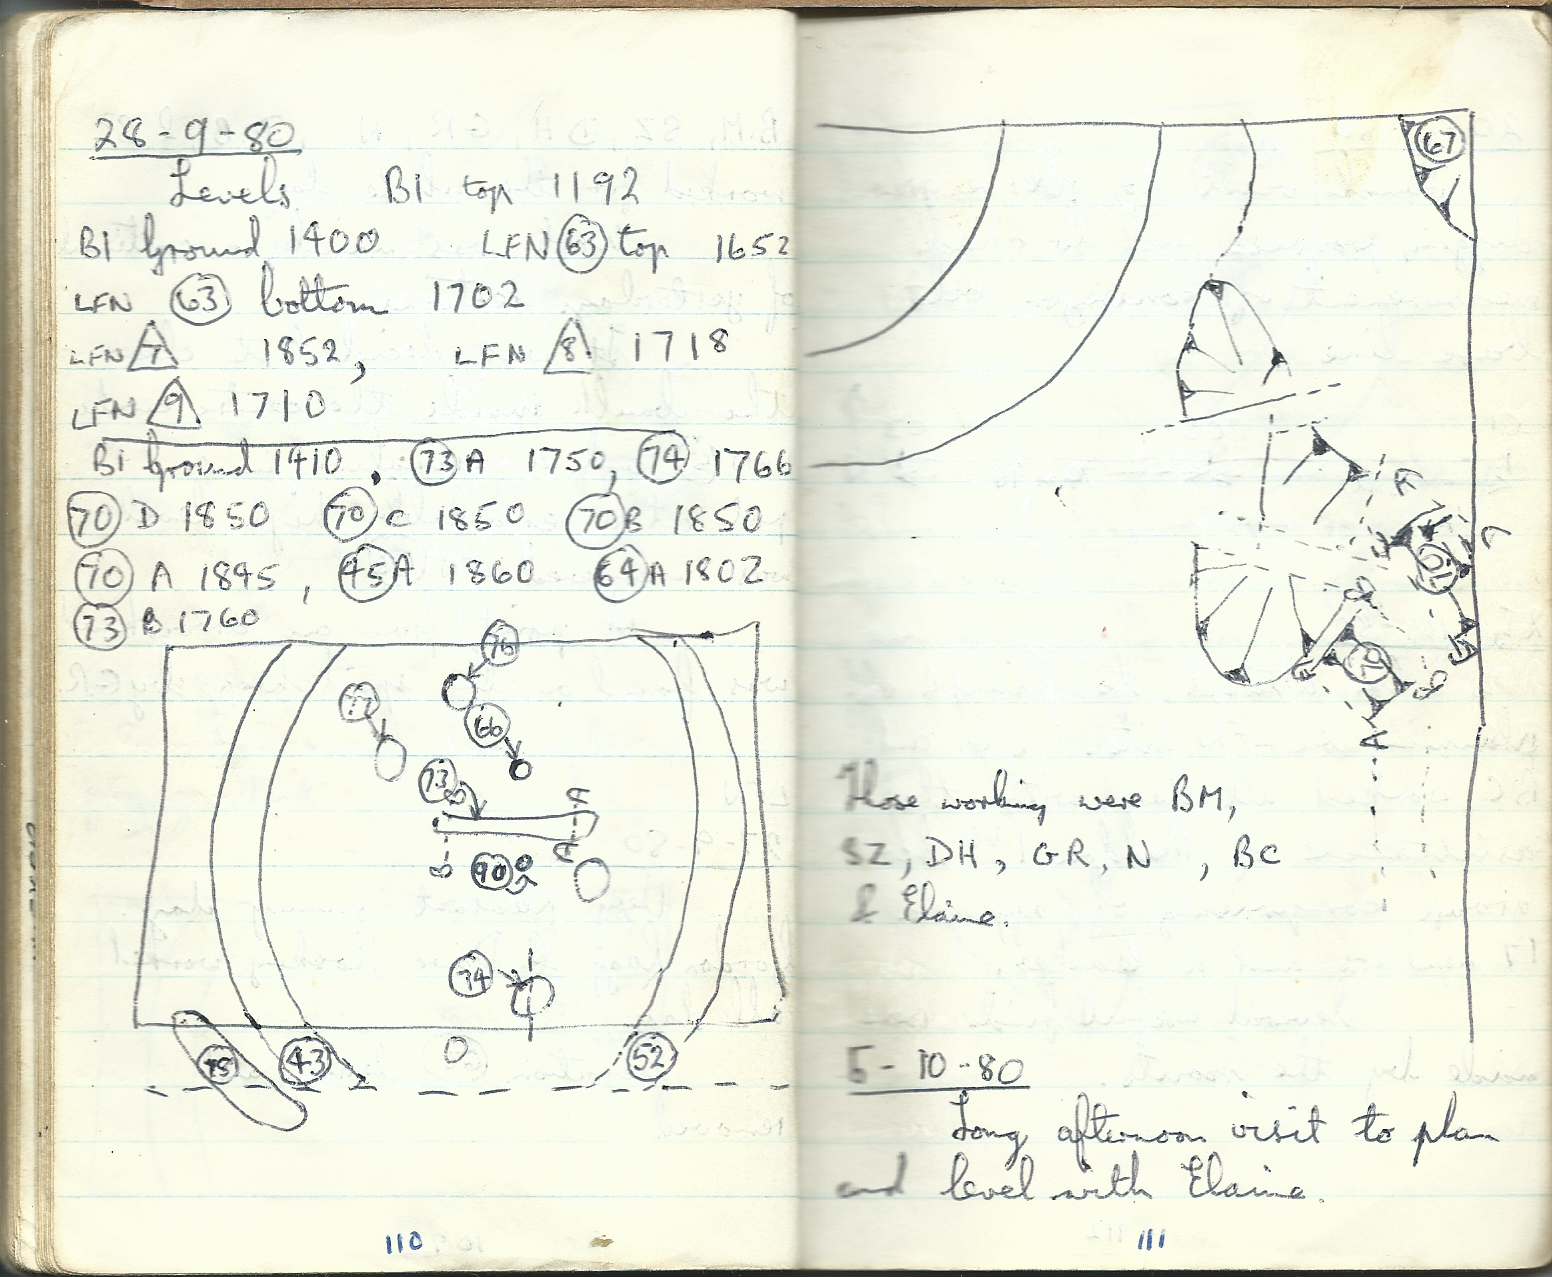 28-9-80
Levels B1 top 1192
B1 Ground 1400 LFN 63 top 1652
LFN 63 bottom 1702
LFN 7 1852, LFN 8 1718
LFN 9 1710
B1 Ground 1410, 73 A 1750, 74 1766
70 D 1850 70 C 1850 70 B 1850
70 A 1845, 45 A 1860 64 A 1802
73 B 1760
76
77
66
73
A
B
90
74
75 43 52
110
67
A
70
B
A
Those working were BM,
SZ, DH, GR, N , BC
& Elaine.
5-10-80
Long afternoon visit to plan
and level with Elaine.
111